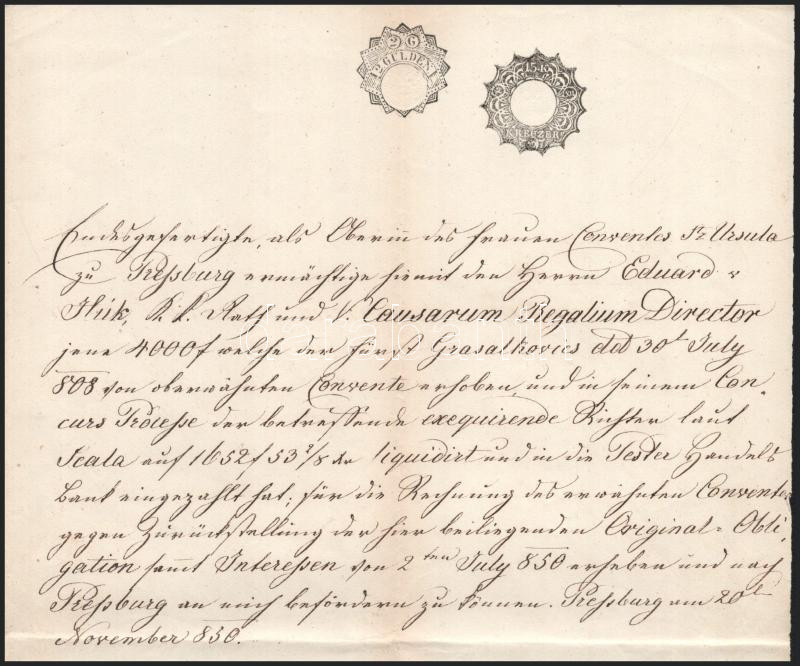 2 G
12 GULDEN 1
15 K
KREUZER
Endesgefertigte, als Oberin des Frauen Conventes St Ursula
zu Preßburg ermächtige hiemit den Herrn Eduard v
K. k. Rath und Causarum Regalium Director
jene 4000 f welche der Fürst Grasalkovics dtd 30t July
808 von oberwähnten Convente erhoben, und in seinem Con,
curs Proceße der betreffende exequirende Richter laut
Scala auf 1652 f 53 2/8 kr liquidirt und in die Pester Handels
Bank eingezahlt hat; für die Rechnung des erwähnten Conventes
gegen Zurückstellung der hier beiliegenden Original-Obli,
gation sammt Intereßen von 2ten July 850 erheben und nach
Preßburg an mich befördern zu können. Preßburg am 20t
November 850.